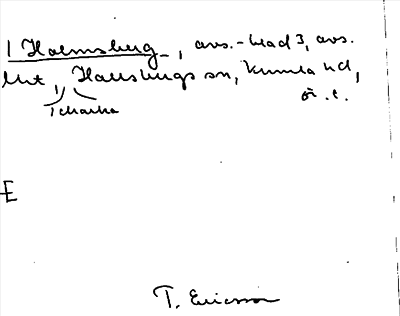 1 Holmsberg, avs.-blad 3, avs.
Hallsbergs sn, Kumla hd,
ö. t.
E
T. Ericsson